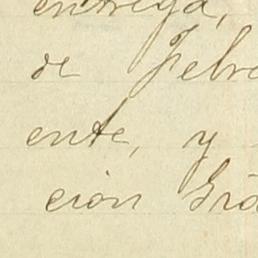 entrega,
de Febre
ente, y
cion Gra